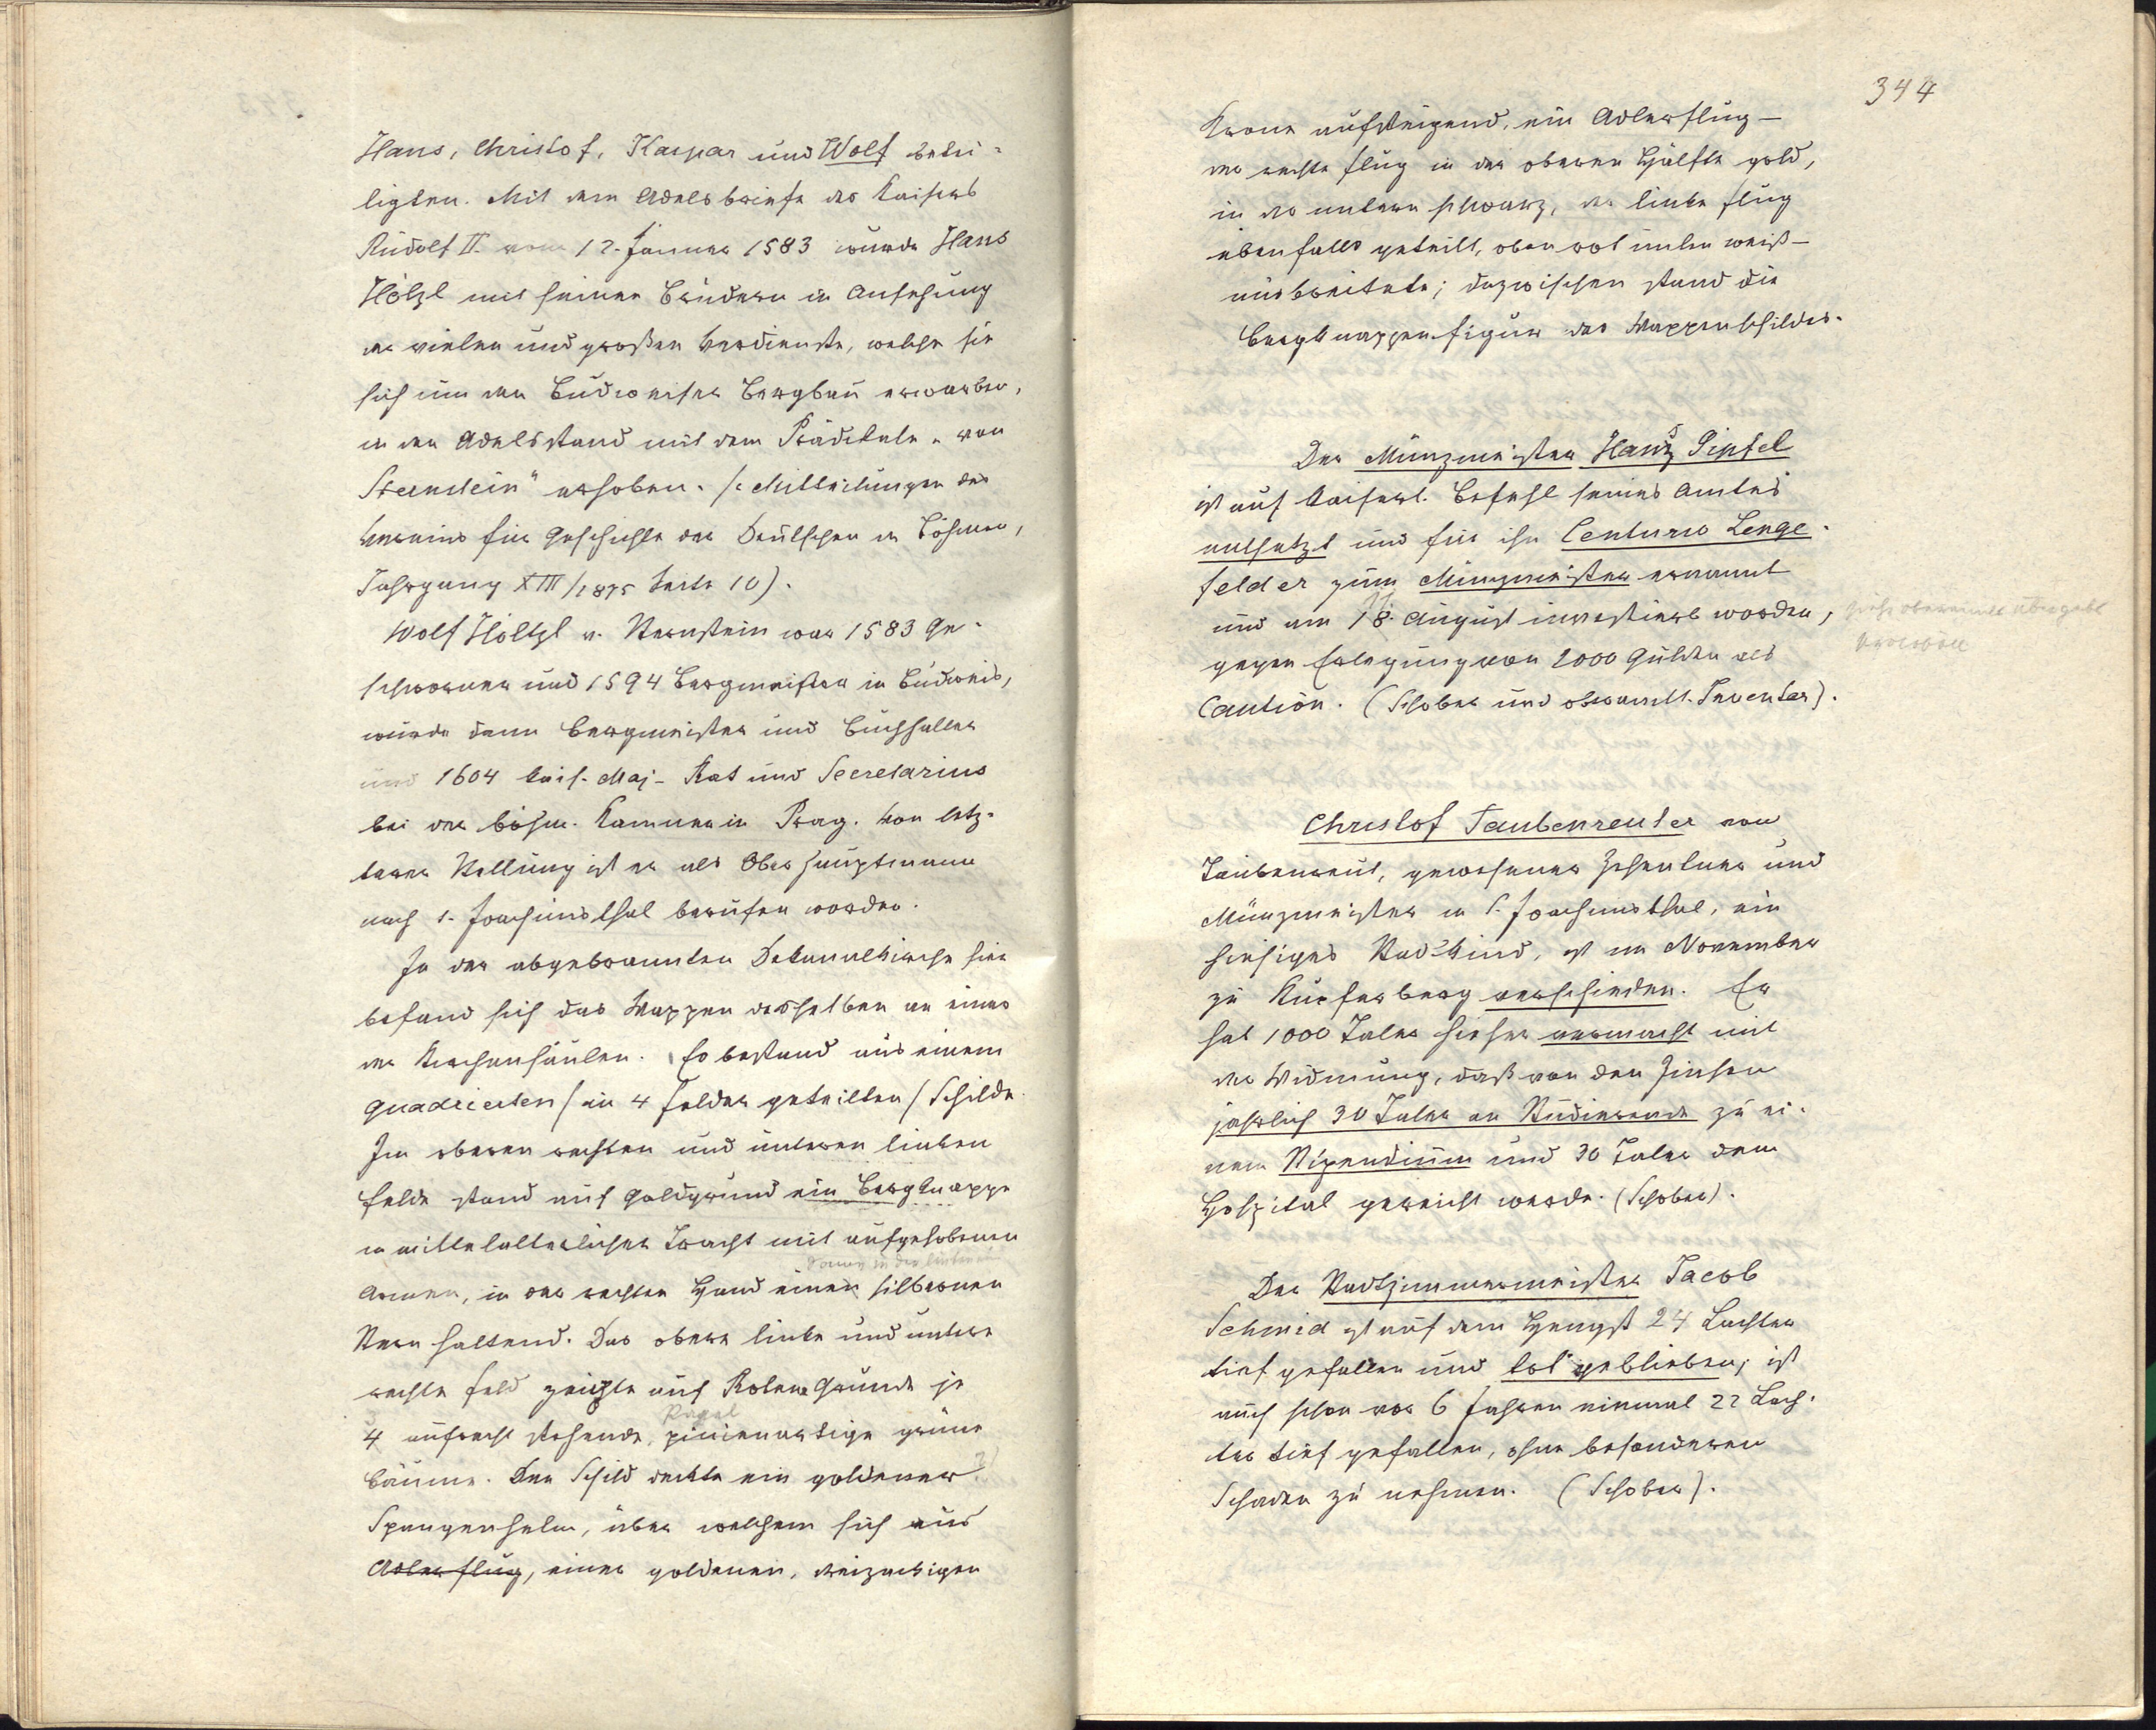 Hans, Christof, Kaspar und Wolf betei-
ligten. Mit dem Adelsbriefe des Kaisers
Rudolf II. vom 12. Jänner 1583 wurde Hans
Hölzl mit seinen Brüdern in Ansehung
der vielen und großen Verdienste, welche sie
sich um den Budweiser Bergbau erwarben,
in den Adelsstand mit dem Prädikate „von
Sternstein" erhoben. /: Mitteilungen des
Vereins für Geschichte der Deutschen in Böhmen,
Jahrgang XIII/1875 Seite 10).
Wolf Höltzl v. Sternstein war 1583 Ge-
schworner und 1594 Bergmeister in Budweis,
wurde dann Bergmeister und Buchhalter
und 1604 kais. Maj. Rat und Secretarius
bei der böhm. Kammer in Prag. Von letz-
terer Stellung ist er als Oberhauptmann
nach S. Joachimsthal berufen worden.
In der abgebrannten Dekanalkirche hier
befand sich das Wappen desselben an einer
der Kirchensäulen. Es bestand aus einem
quadrierten / in 4 Felder geteilten / Schilde.
Im oberen rechten und unteren linken
Felde stand auf Goldgrund ein Bergknappe
in mittelalterlicher Tracht mit aufgehobenen
Armen, in der rechten Hand einen silbernen
Stern haltend. Das obere linke und untere
rechte Feld zeigte auf Rotem Grunde je
4 aufrecht stehende, pinienartige grüne
Bäume. Den Schild deckte ein goldener
Spangenhelm, über welchem sich aus
Adlerflug, einer goldenen, dreizackigen
344
Krone aufsteigend, ein Adlerflug –
der rechte Flug in der oberen Hälfte gold,
in der untern schwarz, der linke Flug
ebenfalls geteilt, oben rot unten weiß –
ausbreitete; dazwischen stand die
Bergknappenfigur des Wappenschildes.
Der Münzmeister Hans Gipfel
ist auf kaiserl. Befehl seines Amtes
entsetzt und für ihn Centurio Lenge-
felder zum Münzmeister ernannt
und am 18. August investiert worden,
gegen Erlegung von 2000 Gulden als
Caution. (Schober und oberamtl. Inventar).
Christof Taubenreuter von
Taubenreut, gewesener Zehentner und
Münzmeister in S. Joachimsthal, ein
hiesiges Stadtkind, ist im November
zu Kupferberg verschieden. Er
hat 1000 Taler hieher vermacht mit
der Widmung, daß von den Zinsen
jährlich 30 Taler an Studierende zu ei-
nem Stipendium und 30 Taler dem
Hospital gereicht werde. (Schober).
Der Stadtzimmermeister Jacob
Schmid ist auf dem Hengst 24 Lachter
tief gefallen und tot geblieben; ist
auch schon vor 6 Jahren einmal 22 Lach-
ter tief gefallen, ohne besonderen
Schaden zu nehmen. (Schober).